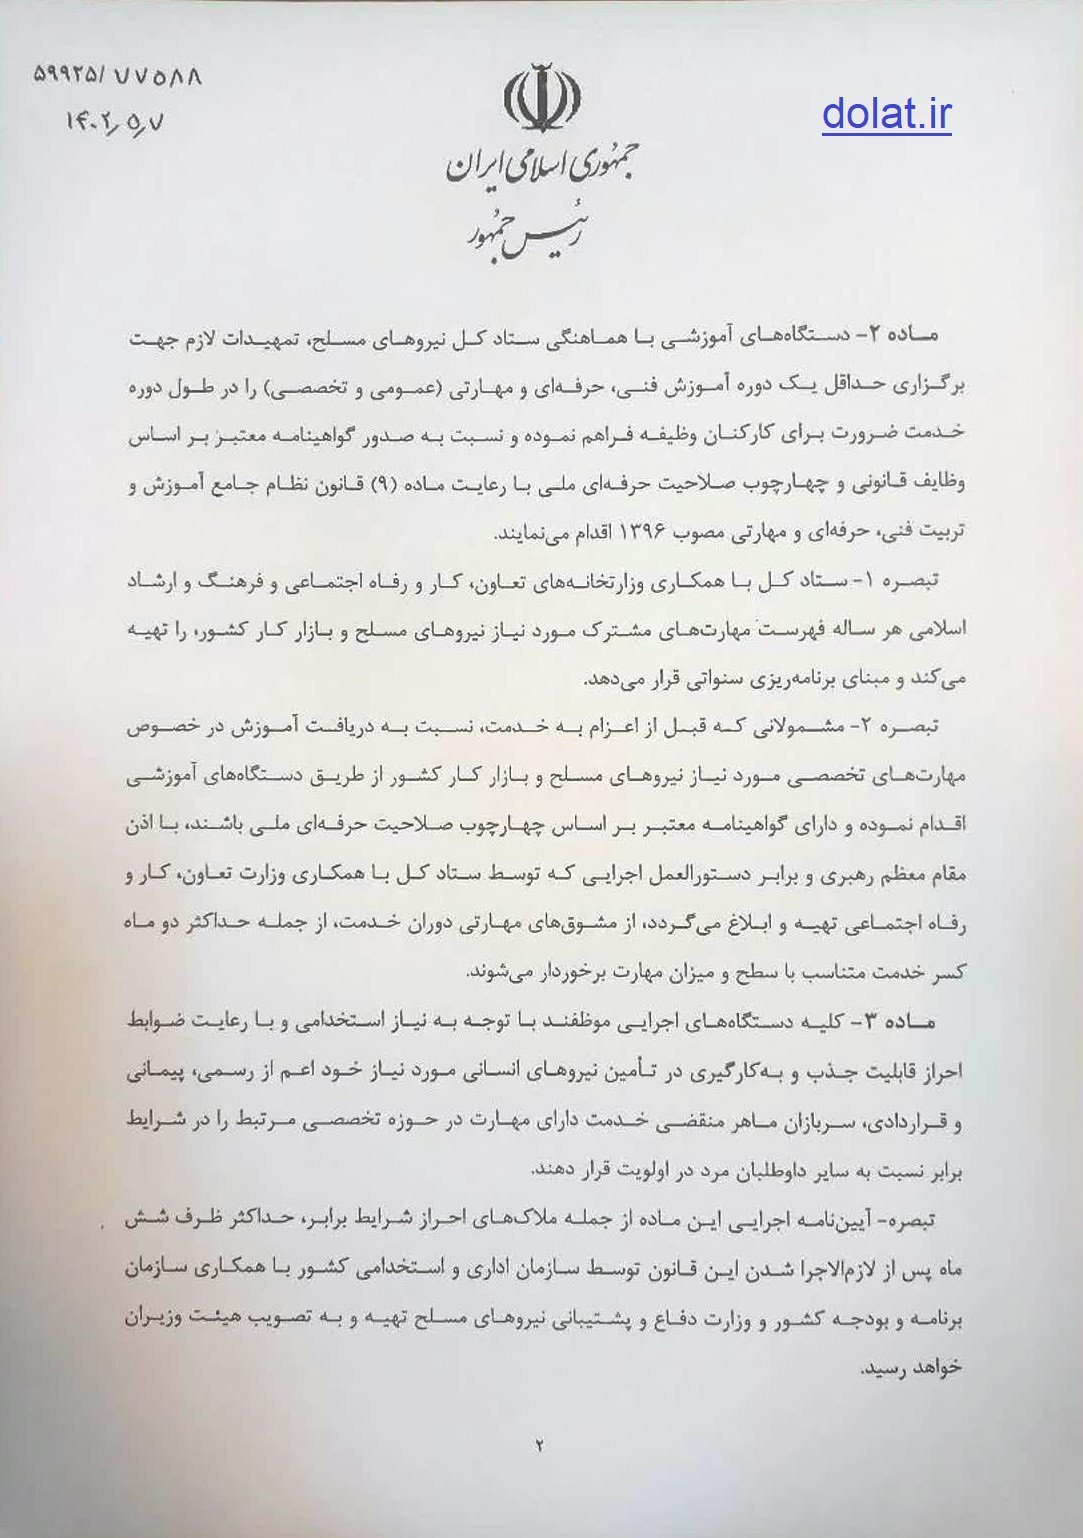 ۵۹۹۲۵/۷۷۵۸۸
۱۴۰۲٫۵٫۷
dolat.ir
جمهوری اسلامی ایران
رئیس جمهور
ماده ۲- دستگاه‌های آموزشی با هماهنگی ستاد کل نیروهای مسلح، تمهیدات لازم جهت
برگزاری حداقل یک دوره آموزش فنی، حرفه‌ای و مهارتی (عمومی و تخصصی) را در طول دوره
خدمت ضرورت برای کارکنان وظیفه فراهم نموده و نسبت به صدور گواهینامه معتبر بر اساس
وظایف قانونی و چهارچوب صلاحیت حرفه‌ای ملی با رعایت ماده (۹) قانون نظام جامع آموزش و
تربیت فنی، حرفه‌ای و مهارتی مصوب ۱۳۹۶ اقدام می‌نمایند.
تبصره ۱- ستاد کل با همکاری وزارتخانه‌های تعاون، کار و رفاه اجتماعی و فرهنگ و ارشاد
اسلامی هر ساله فهرست مهارت‌های مشترک مورد نیاز نیروهای مسلح و بازار کار کشور، را تهیه
می‌کند و مبنای برنامه‌ریزی سنواتی قرار می‌دهد.
تبصره ۲- مشمولانی که قبل از اعزام به خدمت، نسبت به دریافت آموزش در خصوص
مهارت‌های تخصصی مورد نیاز نیروهای مسلح و بازار کار کشور از طریق دستگاه‌های آموزشی
اقدام نموده و دارای گواهینامه معتبر بر اساس چهارچوب صلاحیت حرفه‌ای ملی باشند، با اذن
مقام معظم رهبری و برابر دستورالعمل اجرایی که توسط ستاد کل با همکاری وزارت تعاون، کار و
رفاه اجتماعی تهیه و ابلاغ می‌گردد، از مشوق‌های مهارتی دوران خدمت، از جمله حداکثر دو ماه
کسر خدمت متناسب با سطح و میزان مهارت برخوردار می‌شوند.
ماده ۳- کلیه دستگاه‌های اجرایی موظفند با توجه به نیاز استخدامی و با رعایت ضوابط
احراز قابلیت جذب و به‌کارگیری در تأمین نیروهای انسانی مورد نیاز خود اعم از رسمی، پیمانی
و قراردادی، سربازان ماهر منقضی خدمت دارای مهارت در حوزه تخصصی مرتبط را در شرایط
برابر نسبت به سایر داوطلبان مرد در اولویت قرار دهند.
تبصره- آیین‌نامه اجرایی این ماده از جمله ملاک‌های احراز شرایط برابر، حداکثر ظرف شش
ماه پس از لازم‌الاجرا شدن این قانون توسط سازمان اداری و استخدامی کشور با همکاری سازمان
برنامه و بودجه کشور و وزارت دفاع و پشتیبانی نیروهای مسلح تهیه و به تصویب هیئت وزیران
خواهد رسید.
۲